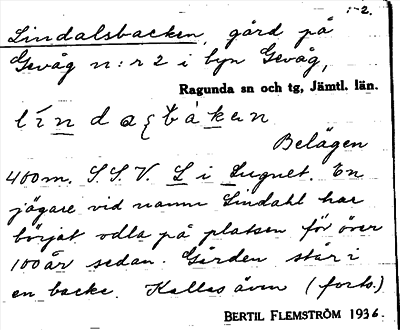 1-2.
Lindalsbacken, gård på
Gevåg n:r 2 i byn Gevåg,
Ragunda sn och tg, Jämtl. län.
Belägen
400 m. S.S.V. L i Lugnet. En
jägare vid namn Lindahl har
börjat odla på platsen för över
100 år sedan. Gården står i
en backe. Kallas även (forts.)
BERTIL FLEMSTRÖM 1936.